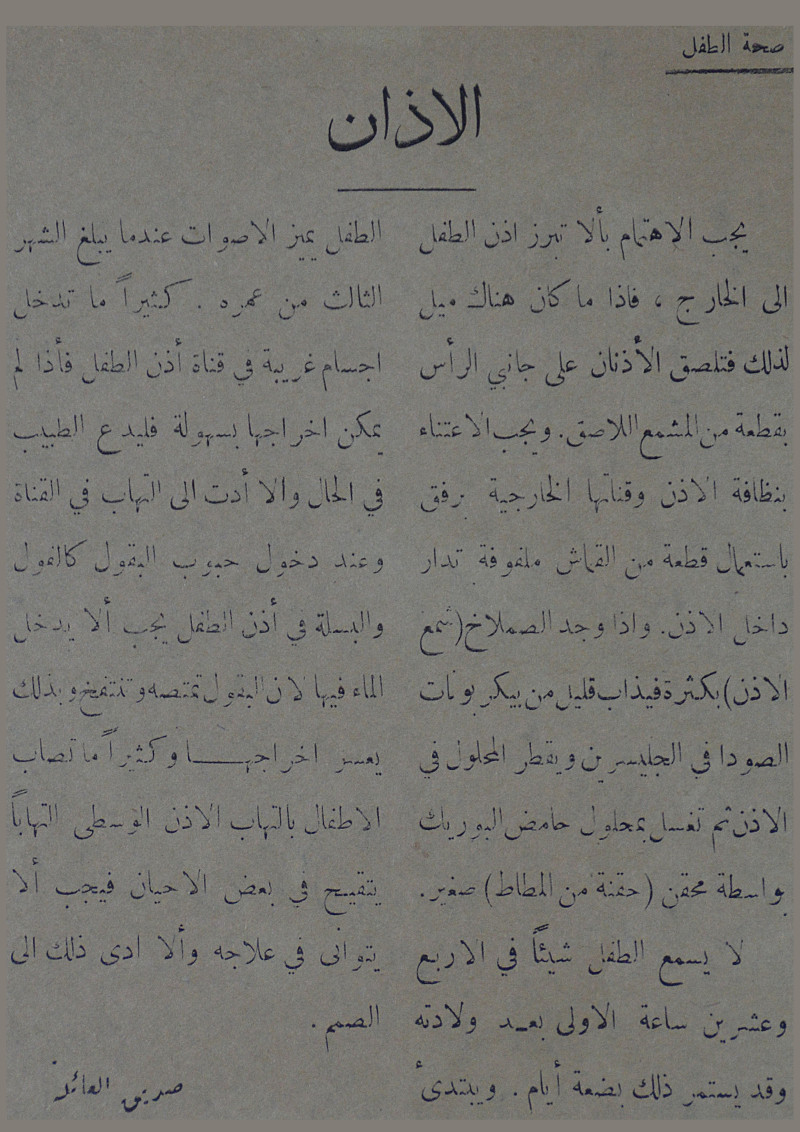 صحة الطفل
الاذان
يجب الاهتمام بألا تبرز اذن الطفل
الى الخارج ، فاذا ما كان هناك ميل
لذلك فتلصق الأذنان على جانبي الرأس
بقطعة من المشمع اللاصق. ويجب الاعتناء
بنظافة الاذن وقناتها الخارجية برفق
باستعمال قطعة من القماش ملفوفة تدار
داخل الاذن. واذا وجد الصملاخ (شمع
الاذن) بكثرة فيذاب قليل من بيكربونات
الصودا في الجليسرين ويقطر المحلول في
الاذن ثم تغسل بمحلول حامض البوريك
بواسطة محقن (حقنة من المطاط) صغير.
لا يسمع الطفل شيئاً في الاربع
وعشرين ساعة الاولى بعد ولادته
وقد يستمر ذلك بضعة أيام . ويبتدىء
الطفل يميز الاصوات عندما يبلغ الشهر
الثالث من عمره . كثيراً ما تدخل
اجسام غريبة في قناة أذن الطفل فأذا لم
يمكن اخراجها بسهولة فليدع الطبيب
في الحال والا أدت الى التهاب في القناة
وعند دخول حبوب البقول كالفول
والبسلة في أذن الطفل يجب ألا يدخل
الماء فيها لان البقول تمتصه وتنتفخ وبذلك
يعسر اخراجهـا وكثيراً ما تصاب
الاطفال بالتهاب الاذن الوسطى التهاباً
يتقيح في بعض الاحيان فيجب ألا
يتوانى في علاجه وألا ادى ذلك الى
الصمم .